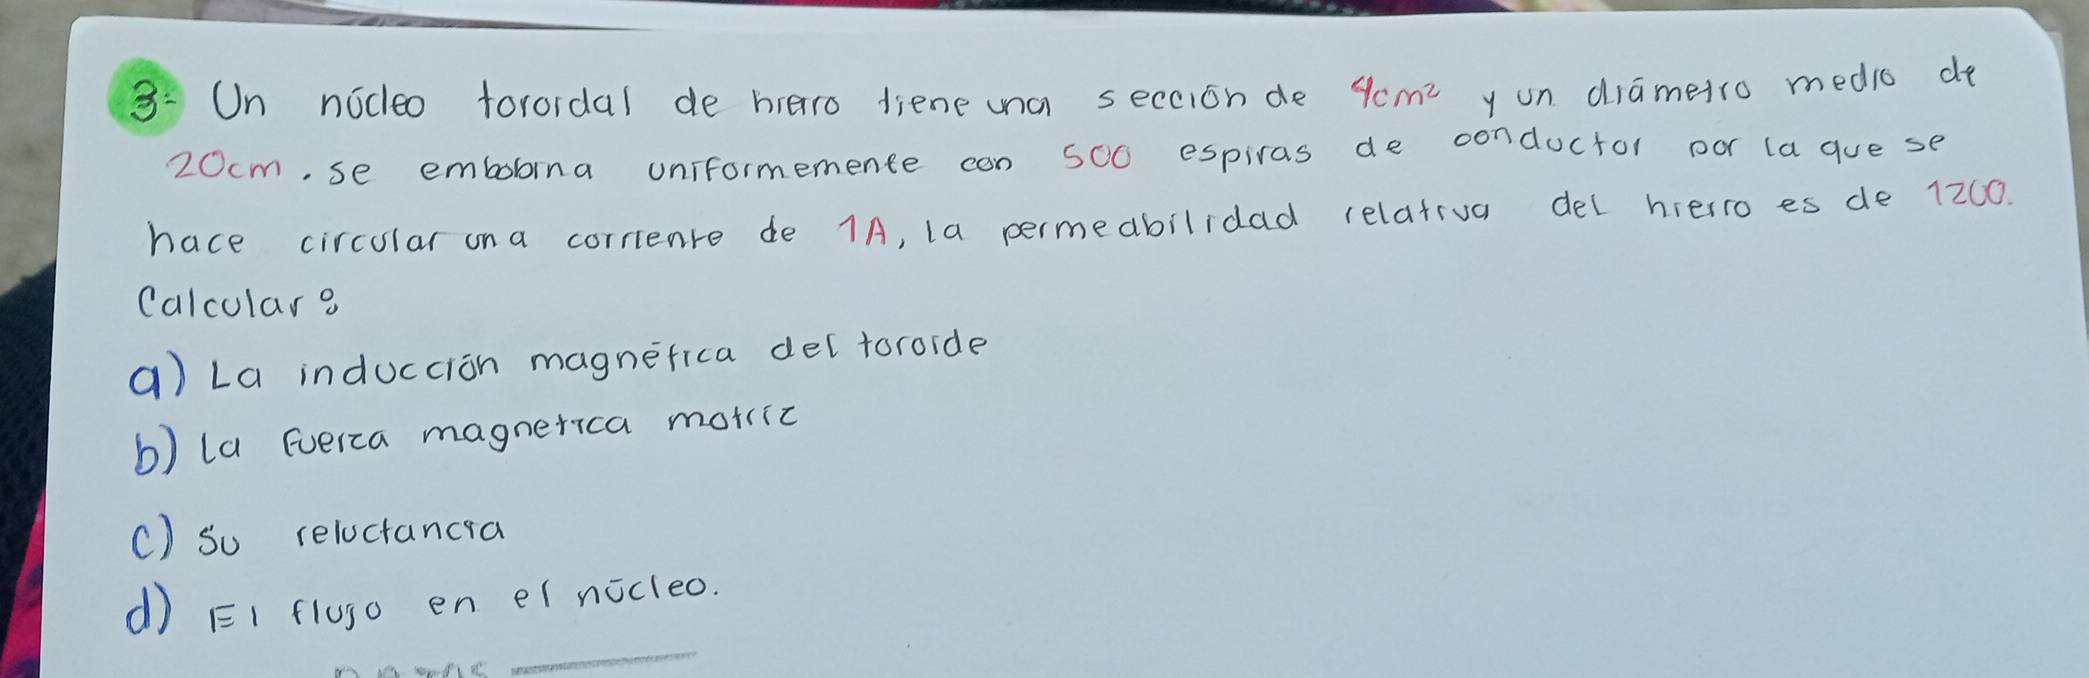 3= Un núcleo toroidal de hierro tiene una sección de 4cm² y un diámetro medio de
20cm. se embobina uniformemente con 500 espiras de conductor por la que se
hace circular una corriente de 1A, la permeabilidad relativa del hierro es de 1200.
Calcular:
a) La inducción magnética del toroide
b) la fuerza magnetica motriz
c) su reluctancia
d) El flujo en el núcleo.